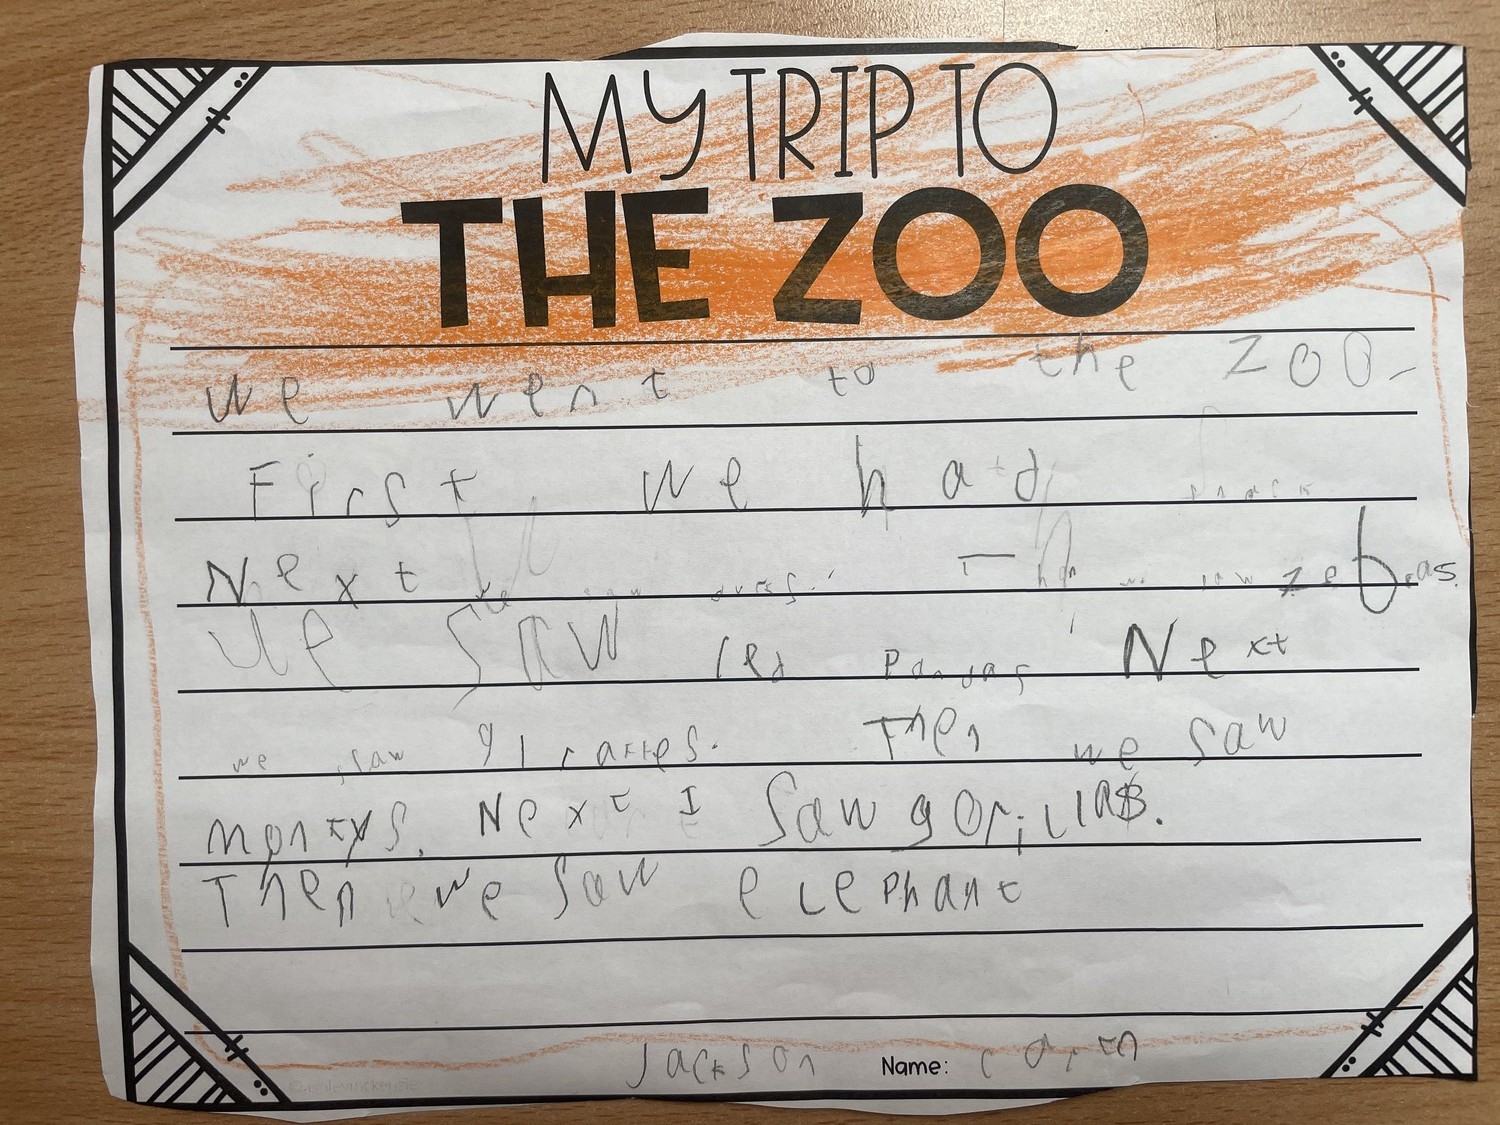 MY TRIP TO
THE ZOO
we went to the zoo
First we had snack
Next we saw Then we saw zebras.
we saw red Pandas Next
we saw giraffes. Then we saw
monkys. Next I saw gorillas.
Then we saw elephant
Jackson Name: